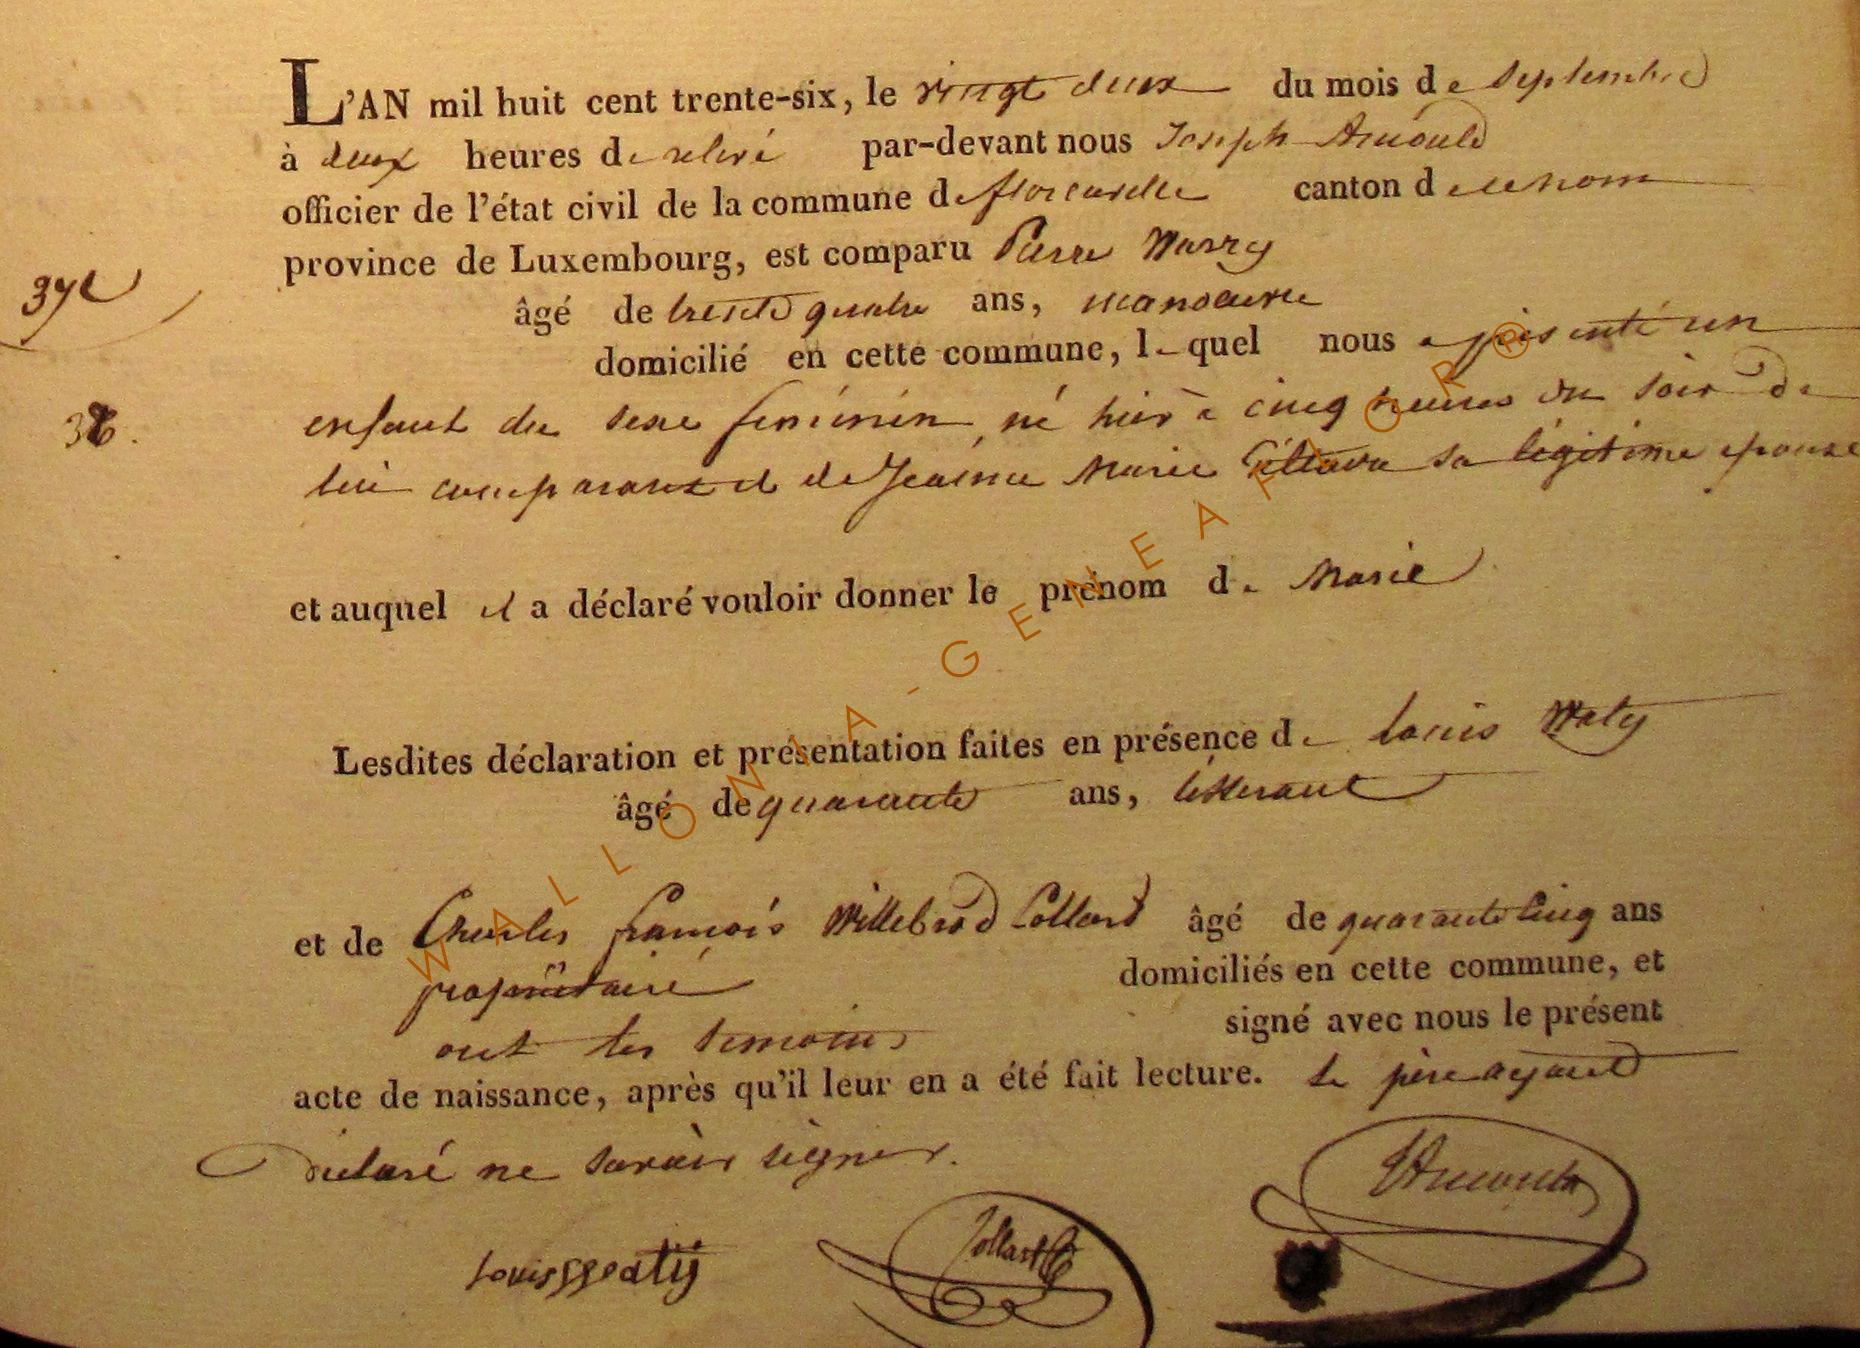 L'AN mil huit cent trente-six, le vingt deux du mois de septembre
à deux heures de relevé par-devant nous Joseph Arnould
officier de l'état civil de la commune de florenville canton de ce nom
province de Luxembourg, est comparu Pierre
âgé de trente quatre ans, manoeuvre
domicilié en cette commune, lequel nous a présenté un
enfant du sexe feminin, né hier à cinq heures du soir de
lui comparant et de Jeanne Marie sa légitime epouse
et auquel il a déclaré vouloir donner le prénom de Marie
Lesdites déclaration et présentation faites en présence de Louis Waty
âgé de quarante ans,
et de Charles francois Willebrod Collard âgé de quarante cinq ans
propriétaire domiciliés en cette commune, et
ont les temoins signé avec nous le présent
acte de naissance, après qu'il leur en a été fait lecture. le père ayant
déclaré ne savoir signer.
Louis Watÿ Collard JArnould
38.
WALLONIA-GENEAFLOR®